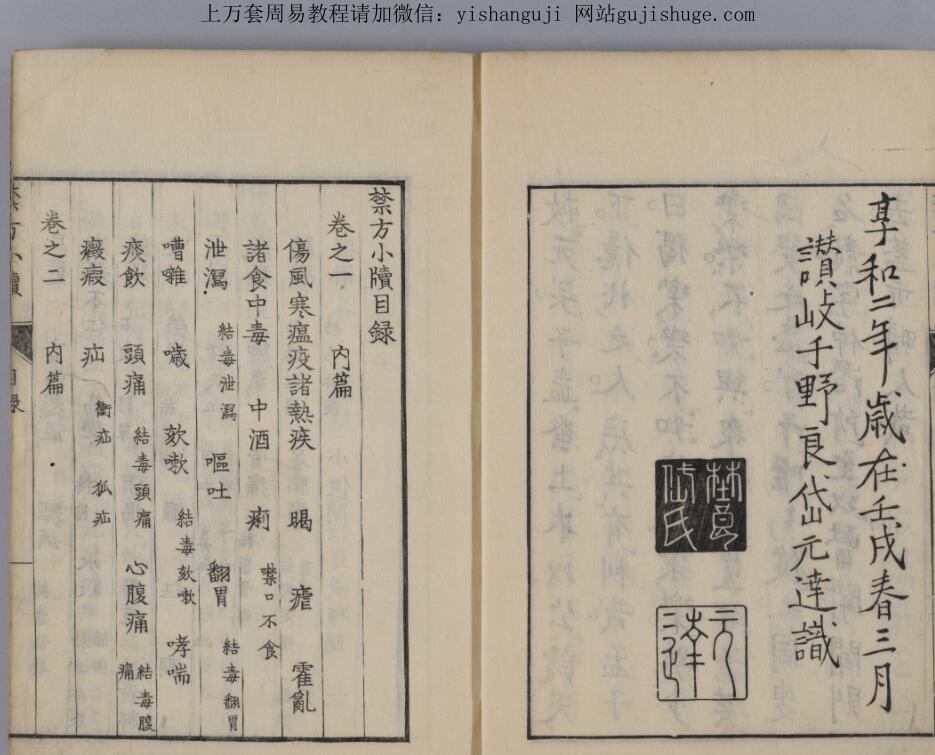 上万套周易教程请加微信：yishanguji 网站gujishuge.com
享和二年歲在壬戌春三月
讃岐千野良岱元達識
岱氏
元達
禁方小牘目録
卷之一 内篇
傷風寒瘟疫諸熱疾 暍 瘧 霍亂
諸食中毒 中酒 痢 噤口不食
泄瀉 結毒泄瀉 嘔吐 翻胃 結毒翻胃
嘈雜 噦 欬嗽 結毒欬嗽 哮喘
痰飲 頭痛 結毒頭痛 心腹痛 結毒腹痛
癥瘕不仁疝 衝疝 狐疝
卷之二 内篇
禁方小牘
目録